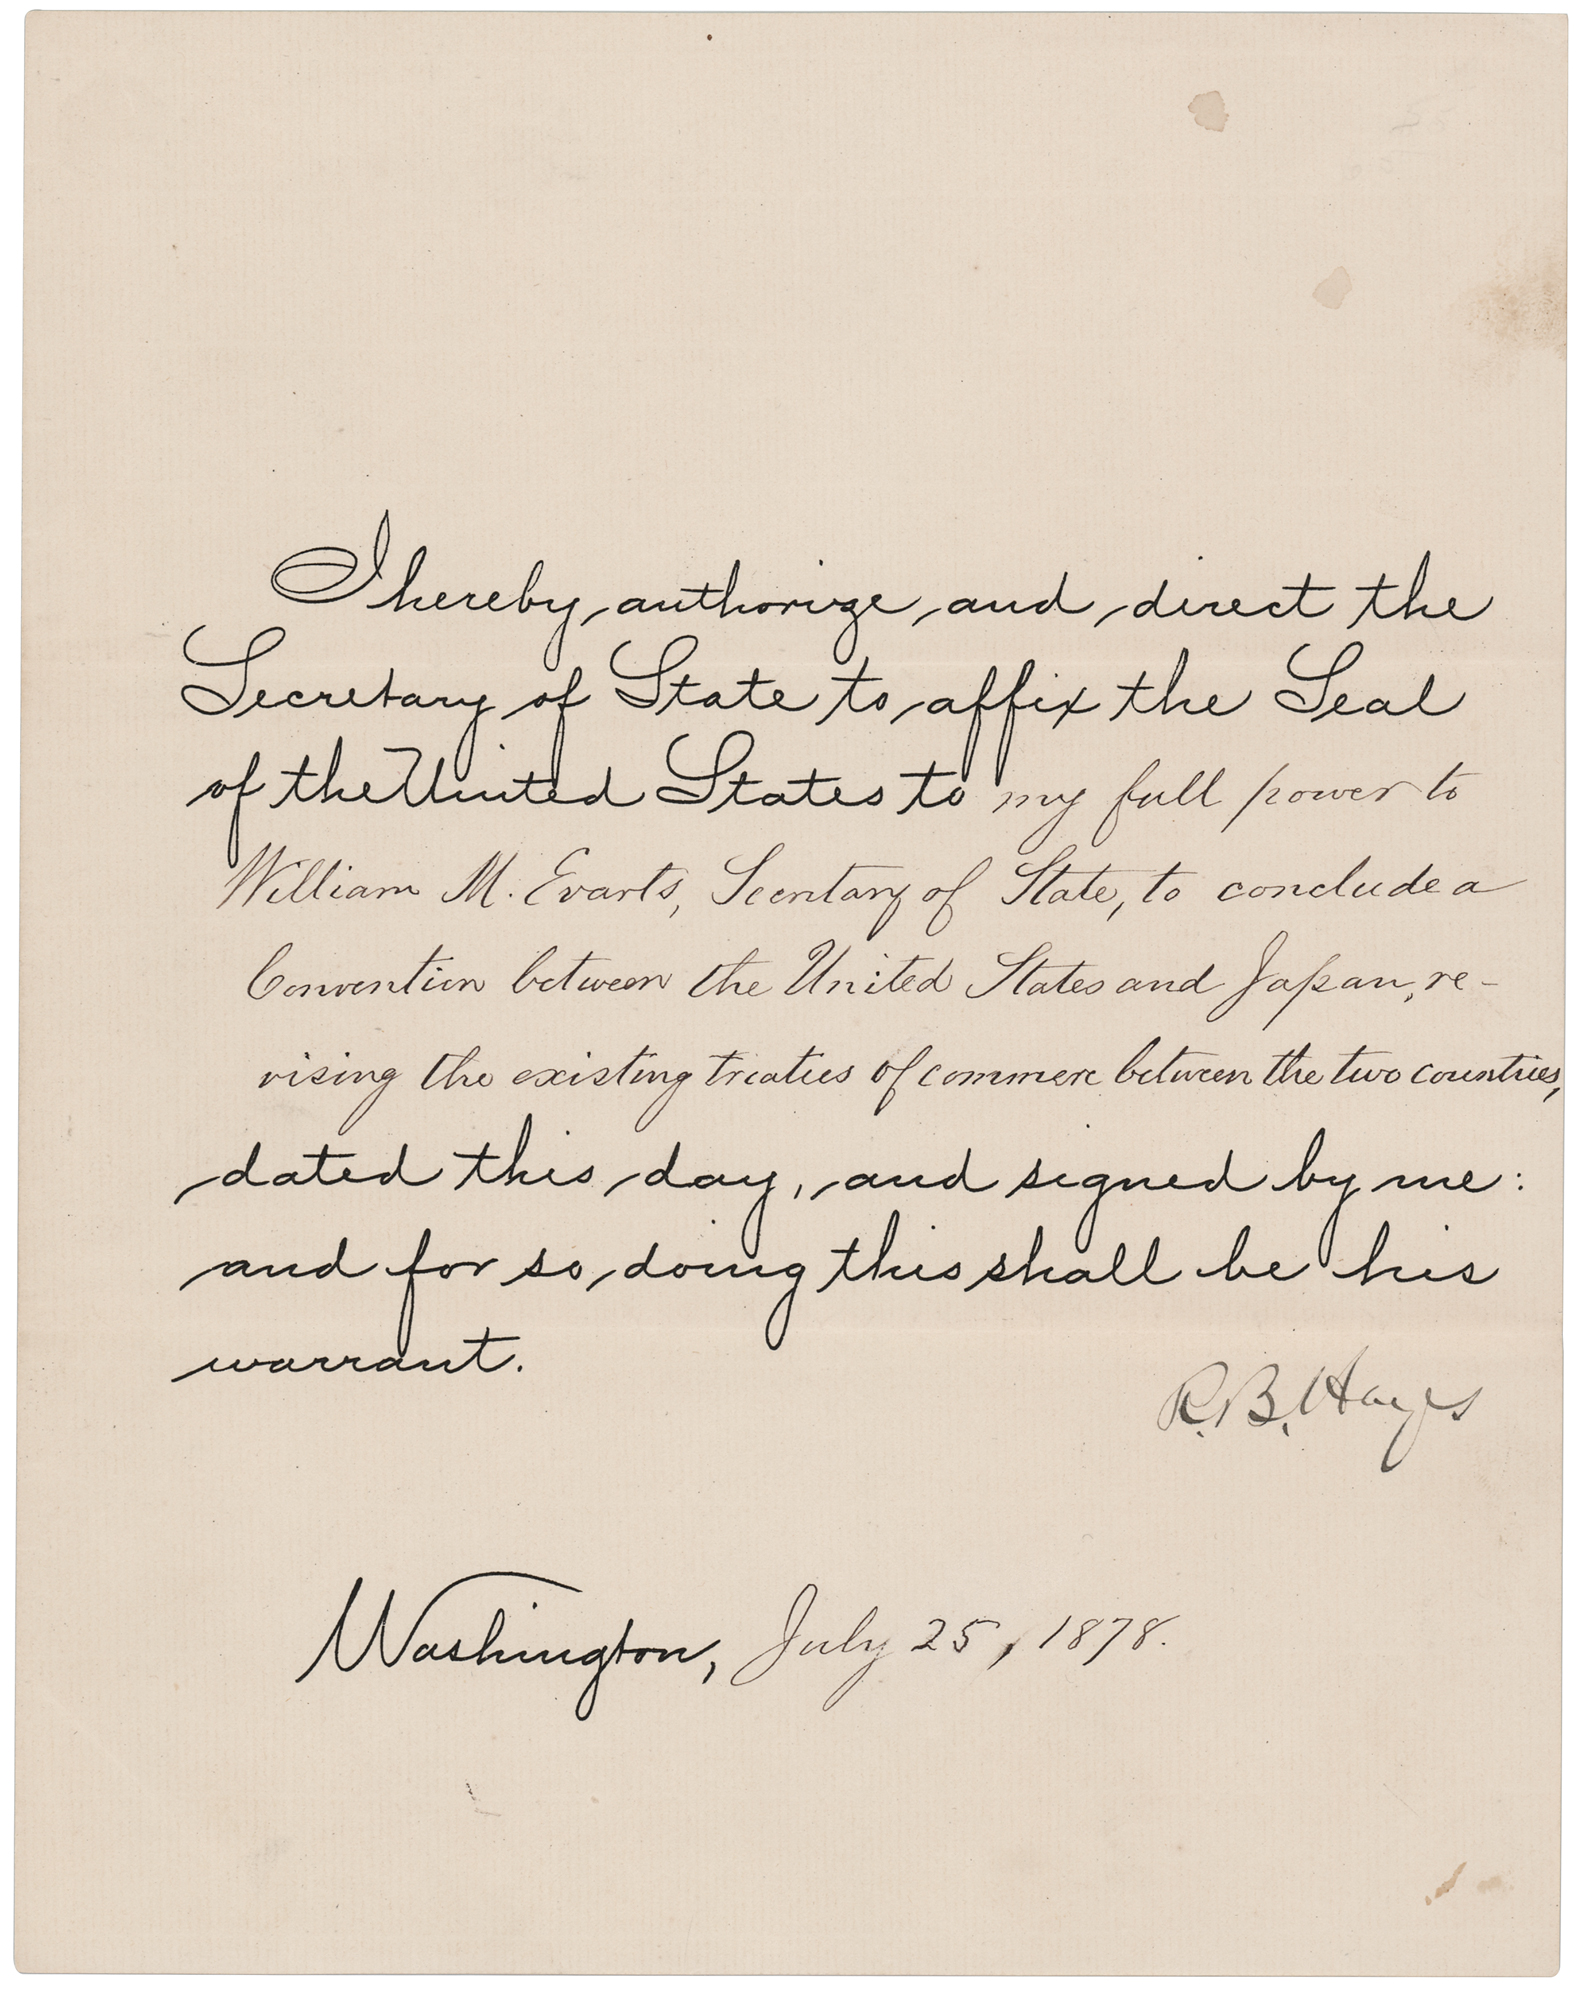 I hereby authorize and direct the
Secretary of State to affix the Seal
of the United States to my full power to
William M. Evarts, Secretary of State, to conclude a
Convention between the United States and Japan, re-
vising the existing treaties of commerce between the two countries,
dated this day, and signed by me:
and for so doing this shall be his
warrant.
R. B. Hayes
Washington, July 25, 1878.